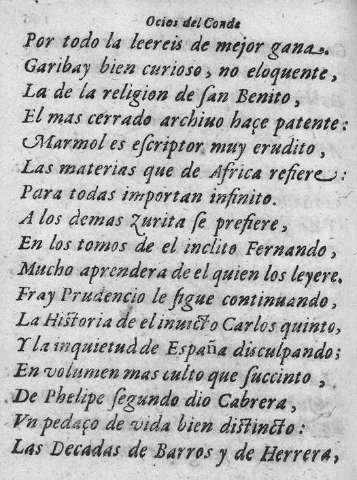 Ocios del Conde
Por todo la leereis de mejor gana.
Garibay bien curioso, no eloquente,
La de la religion de san Benito,
El mas cerrado archiuo haçe patente:
Marmol es escriptor muy erudito,
Las materias que de Africa refiere:
Para todas importan infinito.
A los demas Zurita se prefiere,
En los tomos de el inclito Fernando,
Mucho aprendera de el quien los leyere.
Fray Prudencio le sigue continuando,
La Historia de el inuicto Carlos quinto,
Y la inquietud de España disculpando;
En volumen mas culto que succinto,
De Phelipe segundo dio Cabrera,
Vn pedaço de vida bien distincto:
Las Decadas de Barros y de Herrera,